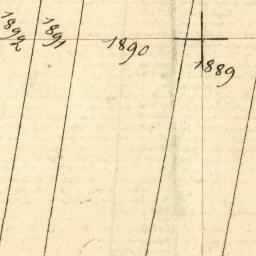 1892
1891
1890
1889